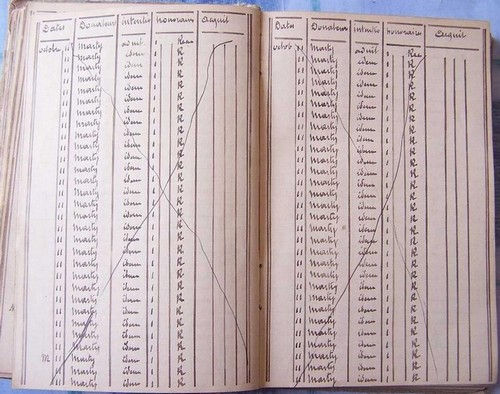 Dates Donateurs intentio honoraires Acquit
octobre " Marty ad int. 1
" Marty idem 1 R
" Marty idem 1 R
" Marty idem 1 R
" Marty idem 1 R
" Marty idem 1 R
" Marty idem 1 R
" Marty idem 1 R
" Marty idem 1 R
" Marty idem 1 R
" Marty idem 1 R
" Marty idem 1 R
" Marty idem 1 R
" Marty idem 1 R
" Marty idem 1 R
" Marty idem 1 R
" Marty idem 1 R
" Marty idem 1 R
" Marty idem 1 R
" Marty idem 1 R
" Marty idem 1 R
" Marty idem 1 R
" Marty idem 1 R
" Marty idem 1 R
" Marty idem 1 R
" Marty idem 1 R
M " Marty idem 1 R
" Marty idem 1 R
" Marty idem 1 R
Dates Donateurs intentio honoraires Acquit
octob " Marty ad int 1
" Marty idem 1 R
" Marty idem 1 R
" Marty idem 1 R
" Marty idem 1 R
" Marty idem 1 R
" Marty idem 1 R
" Marty idem 1 R
" Marty idem 1 R
" Marty idem 1 R
" Marty idem 1 R
" Marty idem 1 R
" Marty idem 1 R
" Marty idem 1 R
" Marty idem 1 R
" Marty idem 1 R
" Marty idem 1 R
" Marty idem 1 R
" Marty idem 1 R
" Marty idem 1 R
" Marty idem 1 R
" Marty idem 1 R
" Marty idem 1 R
" Marty idem 1 R
" Marty idem 1 R
" Marty idem 1 R
" Marty idem 1 R
" Marty idem 1 R
" Marty idem 1 R